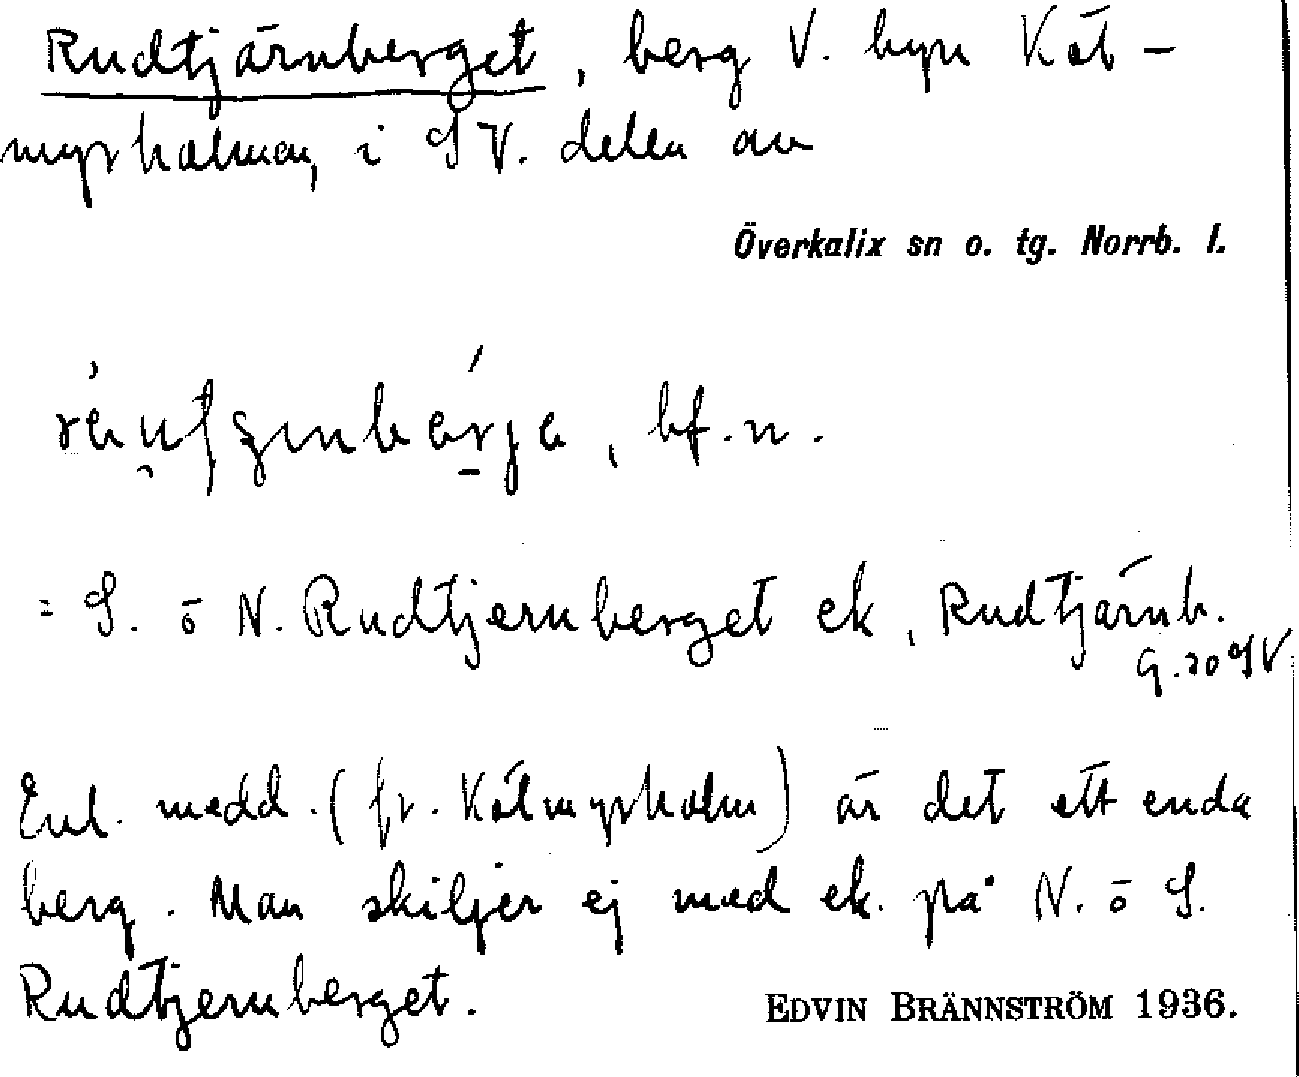 Rudtjärnberget, berg V. byn Köt-
myrholmen, i SV. delen av
Överkalix sn o. tg. Norrb. l.
, bf.n.
= S. o N. Rudtjernberget ek, Rudtjärnb.
G. 20 SV
Enl. medd. (fr. Kötmyrholm) är det ett enda
berg. Man skiljer ej med ek. på N. o S.
Rudtjernberget.
EDVIN BRÄNNSTRÖM 1936.